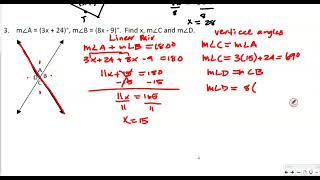 8 8
x = 28
3. m∠A = (3x + 24)°, m∠B = (8x - 9)°. Find x, m∠C and m∠D.
Linear Pair
vertical angles
m∠A + m∠B = 180°
m∠C = m∠A
3x+24 + 8x -9 = 180
m∠C = 3(15)+24 = 69°
11x+15 = 180
m∠D = m∠B
-15 -15
m∠D = 8(
11x = 165
11 11
x = 15
A
D B
C